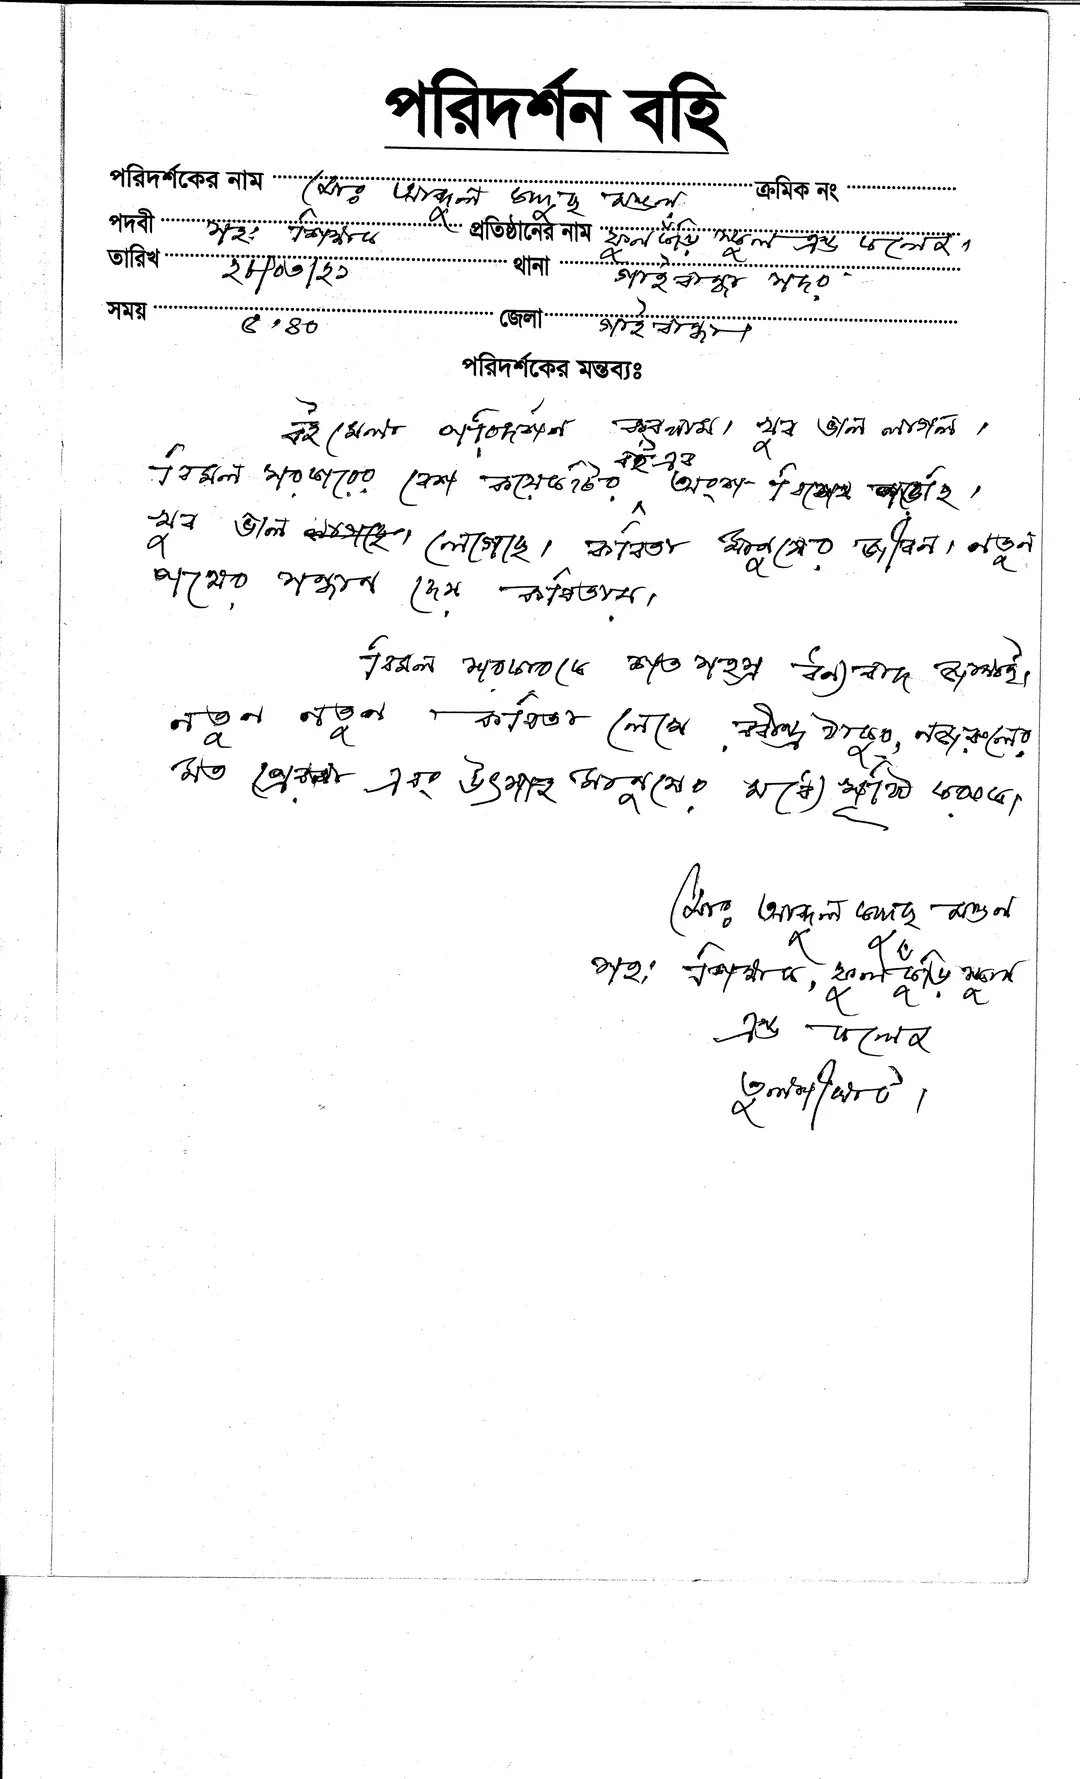 পরিদর্শন বহি
পরিদর্শকের নাম মোঃ আব্দুল কুদ্দুছ মণ্ডল ক্রমিক নং
পদবী সহঃ শিক্ষক প্রতিষ্ঠানের নাম ফুলকুঁড়ি স্কুল এন্ড কলেজ,
তারিখ ২৮/০৩/২১ থানা গাইবান্ধা সদর
সময় ৫:৪০ জেলা গাইবান্ধা।
পরিদর্শকের মন্তব্যঃ
বই মেলা পরিদর্শন করলাম। খুব ভাল লাগল।
বিমল সরকারের বেশ কয়েকটির বই এর অংশ বিশেষ পড়েছি।
খুব ভাল লেগেছে। কবিতা মানুষের জীবন। নতুন
পথের সন্ধান দেয় কবিতায়।
বিমল সরকারকে শত সহস্র ধন্যবাদ জানাই।
নতুন নতুন কবিতা লেখে রবীন্দ্র ঠাকুর, নজরুলের
মত প্রেরণা এবং উৎসাহ মানুষের মধ্যে সৃষ্টি করবে।
মোঃ আব্দুল কুদ্দুছ মণ্ডল
সহঃ শিক্ষক, ফুলকুঁড়ি স্কুল
এন্ড কলেজ
তুলশীঘাট।